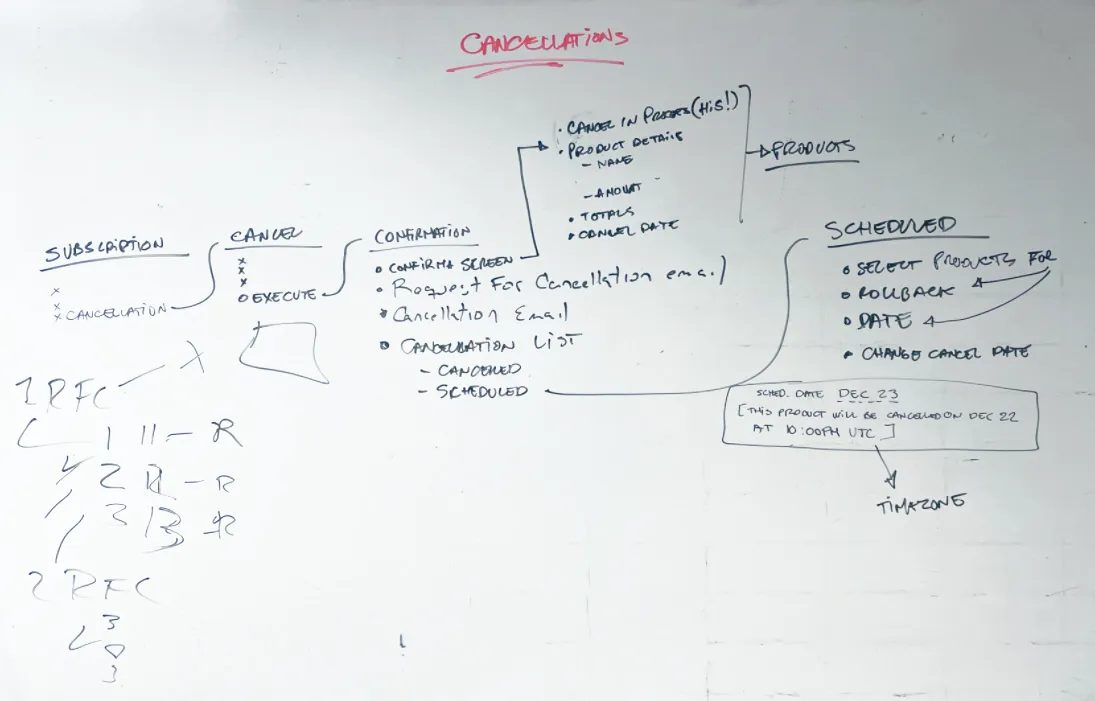 CANCELLATIONS
• CANCEL IN PROCESS (HIS!)
• PRODUCT DETAILS
– NAME
– AMOUNT
• TOTALS
• CANCEL DATE
PRODUCTS
SUBSCRIPTION
x
x
x CANCELLATION
CANCEL
x
x
x
o EXECUTE
CONFIRMATION
• CONFIRMA SCREEN
• Request For Cancellation email
• Cancellation Email
• CANCELLATION LIST
– CANCELLED
– SCHEDULED
SCHEDULED
• SELECT PRODUCTS FOR
• ROLLBACK
• DATE
• CHANGE CANCEL DATE
SCHED. DATE DEC 23
[THIS PRODUCT WILL BE CANCELLED ON DEC 22
AT 10:00PM UTC]
TIMAZONE
1 RFC
1 11 – R
2 – R
3 13 – R
2 RFC
3
3